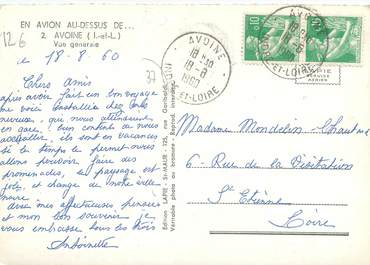 EN AVION AU-DESSUS DE...
2. AVOINE (I.-et-L.)
Vue générale
126
le 18.8.60
37
Chers amis
après avoir fait un bon voyage
me voici installée
neveuse, qui nous attendaient
en gare, bien contents de nous
accueillir, ils sont en vacances
si le temps le permet nous
allons pouvoir faire des
promenades, le paysage est
joli, et change de notre ville
noire
avec affectueuses pensées
et mon bon souvenir je
vous embrasse tous les trois
Antoinette
Edition LAPIE - St-MAUR - 125, rue Garibaldi
Véritable photo au bromure - Reprod. interdite
AVOINE
18 H30
18-8
1960
INDRE-ET-LOIRE
0,10
LAPIE
SERVICE
AERIEN
Madame Mondelin
6 Rue de la Visitation
St Etienne
Loire